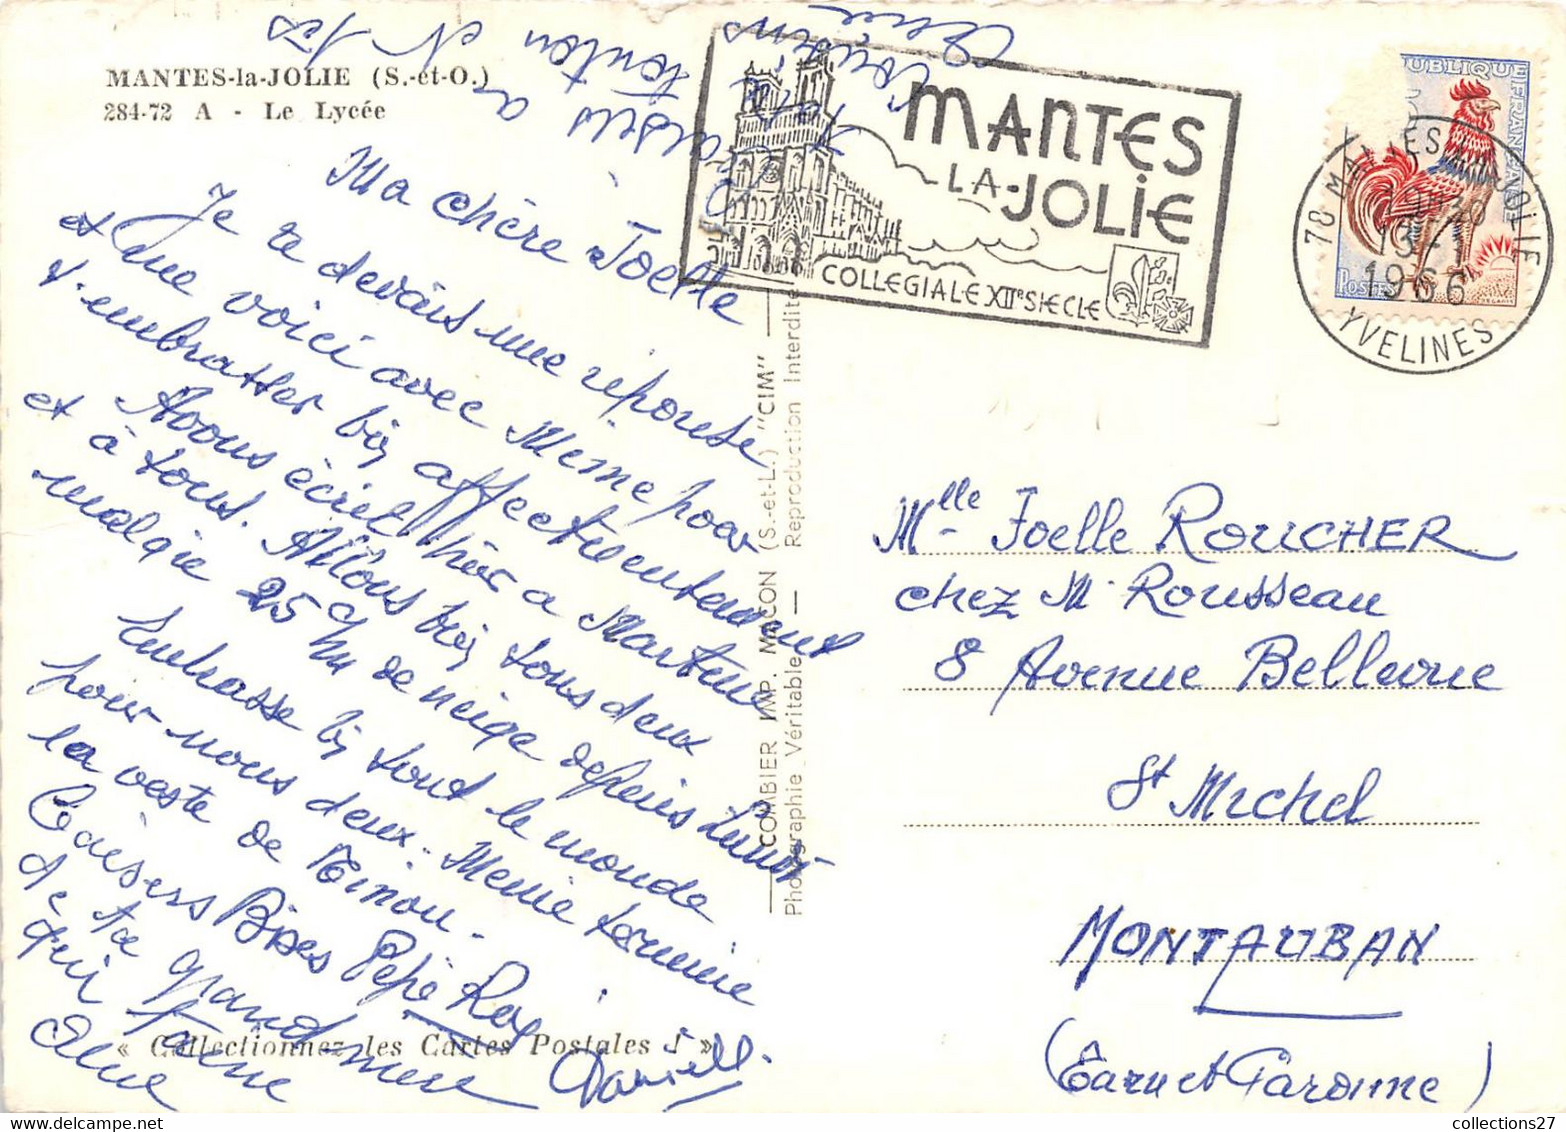 MANTES-la-JOLIE (S.-et-O.)
284-72 A - Le Lycée
Ma chère Joelle
Je te devais une réponse,
et une voici avec Mémé pour
t'embrasser bien affectueusement
Avons écrit hier a Martine
et à tous. Allons bien tous deux
malgré 25 c/m de neige depuis Lundi
Embrasse bien tout le monde
pour nous deux. Mémé termine
la veste de Ninou.
Baisers Bises Pépé Roy
de ta grand-mère
qui t'aime
Danielle
baisers a
tonton et
« Collectionnez les Cartes Postales ! »
COMBIER IMP. MACON (S.-et-L.) "CIM"
Photographie Véritable — Reproduction Interdite
MANTES
LA-JOLIE
COLLEGIALE XIIe SIECLE
RÉPUBLIQUE FRANÇAISE
POSTES
78 MANTES-LA-JOLIE
13-1
1966
YVELINES
Mlle Joelle ROUCHER
chez Mr Rousseau
8 Avenue Bellevue
St Michel
MONTAUBAN
(Tarn et Garonne)
collections27